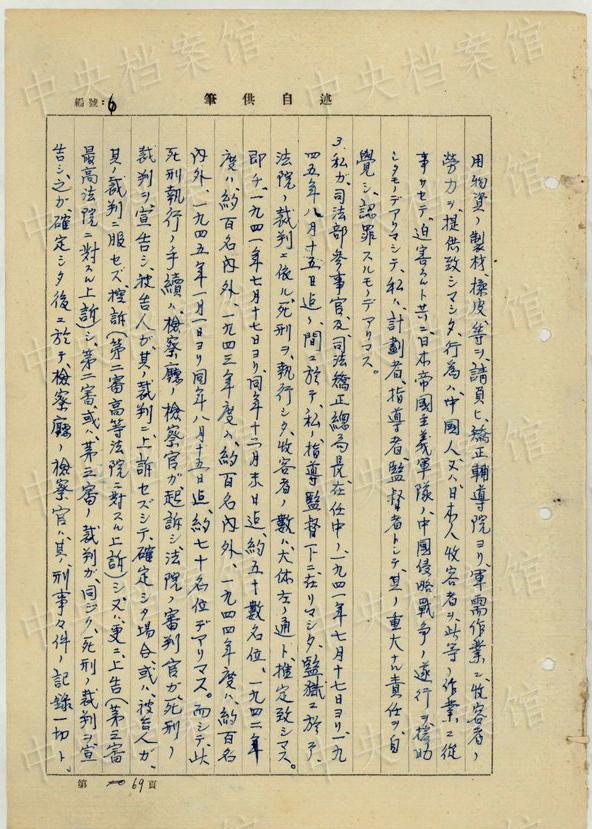 述自供筆
編號:6
用物資ノ製材、操皮等ヲ、請負ヒ、矯正輔導院ヨリ、軍需作業ニ、收容者ノ
勞力ヲ、提供致シマシタ行為ハ、中國人又ハ日本人收容者ヲ、此等ノ作業ニ從
事サセテ、迫害スルト共ニ、日本帝國主義軍隊ノ中國侵略戰爭ノ遂行ヲ援助
シタモノデアリマシテ、私ハ計劃者、指導者、監督者トシテ、其ノ重大ナル責任ヲ、自
覺シ、認罪スルモノデアリマス。
3、私ガ、司法部參事官、及司法矯正總局長、在任中ノ、一九四一年七月十七日ヨリ、一九
四五年八月十五日迄ノ間ニ於テ、私ノ指導監督下ニ在リマシタ、監獄ニ於テ、
法院ノ裁判ニ依ル、死刑ヲ、執行シタ、收容者ノ數ハ、大体左ノ通ト、推定致シマス。
即チ、一九四一年七月十七日ヨリ、同年十二月末日迄、約五十數名位、一九四二年
度ハ、約百名內外、一九四三年度ハ、約百名內外、一九四四年度ハ、約百名
內外、一九四五年一月一日ヨリ、同年八月十五日迄、約七十名位デアリマス。而シテ、此
死刑執行ノ手續ハ、檢察廳ノ檢察官ガ、起訴シ、法院ノ審判官ガ、死刑ノ
裁判ヲ、宣告シ、被告人ガ、其ノ裁判ニ、上訴セズシテ、確定シタ場合、或ハ、被告人ガ、
其ノ裁判ニ服セズ、控訴(第二審高等法院ニ對スル上訴)シ、又ハ、更ニ、上告(第三審
最高法院ニ對スル上訴)シ、第二審或ハ、第三審ノ裁判ガ、同ジク、死刑ノ裁判ヲ宣
告シ、之ガ確定シタ後ニ於テ、檢察廳ノ檢察官ハ、其ノ刑事々件ノ記錄一切ト、
第 69 頁
中央档案馆